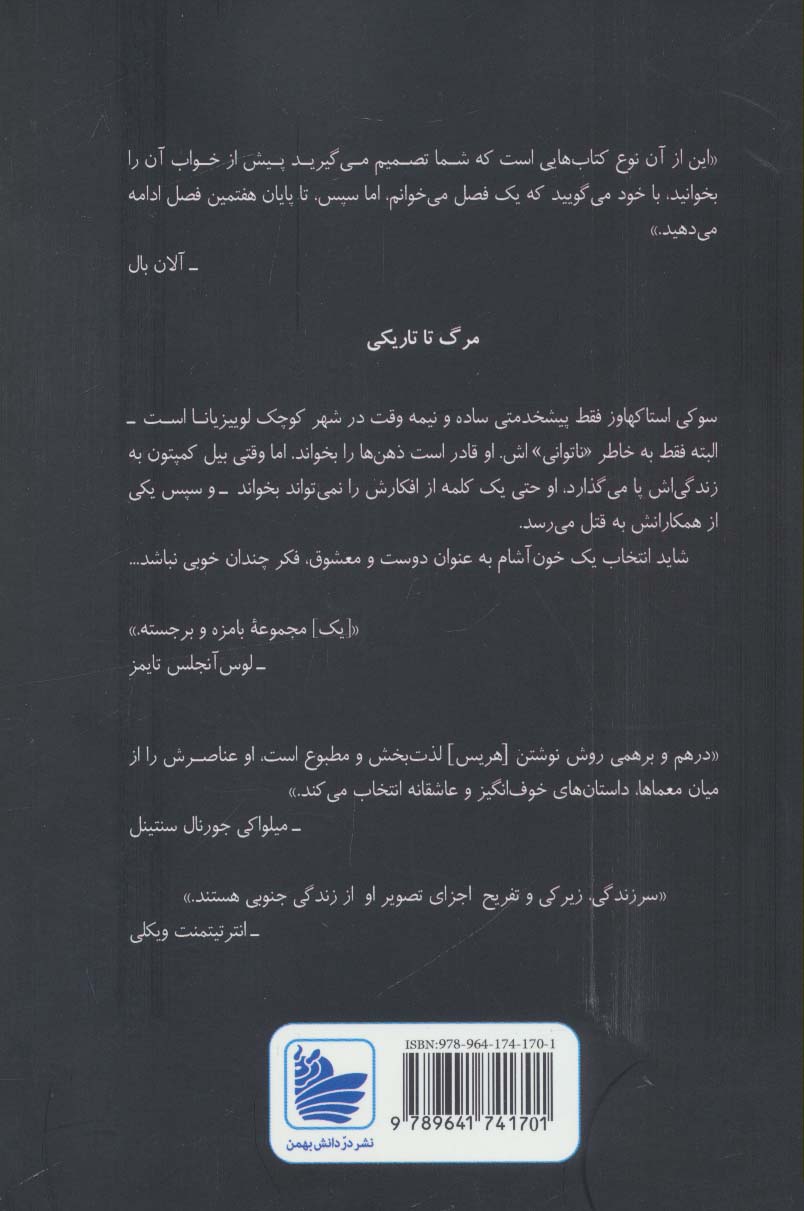 «این از آن نوع کتاب‌هایی است که شما تصمیم می‌گیرید پیش از خواب آن را
بخوانید، با خود می‌گویید که یک فصل می‌خوانم، اما سپس، تا پایان هفتمین فصل ادامه
می‌دهید.»
ـ آلان بال
مرگ تا تاریکی
سوکی استاکهاوز فقط پیشخدمتی ساده و نیمه وقت در شهر کوچک لوییزیانا است ـ
البته فقط به خاطر «ناتوانی» اش. او قادر است ذهن‌ها را بخواند. اما وقتی بیل کمپتون به
زندگی‌اش پا می‌گذارد، او حتی یک کلمه از افکارش را نمی‌تواند بخواند ـ و سپس یکی
از همکارانش به قتل می‌رسد.
شاید انتخاب یک خون‌آشام به عنوان دوست و معشوق، فکر چندان خوبی نباشد...
«[یک] مجموعهٔ بامزه و برجسته.»
ـ لوس‌آنجلس تایمز
«درهم و برهمی روش نوشتن [هریس] لذت‌بخش و مطبوع است، او عناصرش را از
میان معماها، داستان‌های خوف‌انگیز و عاشقانه انتخاب می‌کند.»
ـ میلواکی جورنال سنتینل
«سرزندگی، زیرکی و تفریح اجزای تصویر او از زندگی جنوبی هستند.»
ـ انترتیتمنت ویکلی
ISBN:978-964-174-170-1
9 789641 741701
نشر درّ دانش بهمن